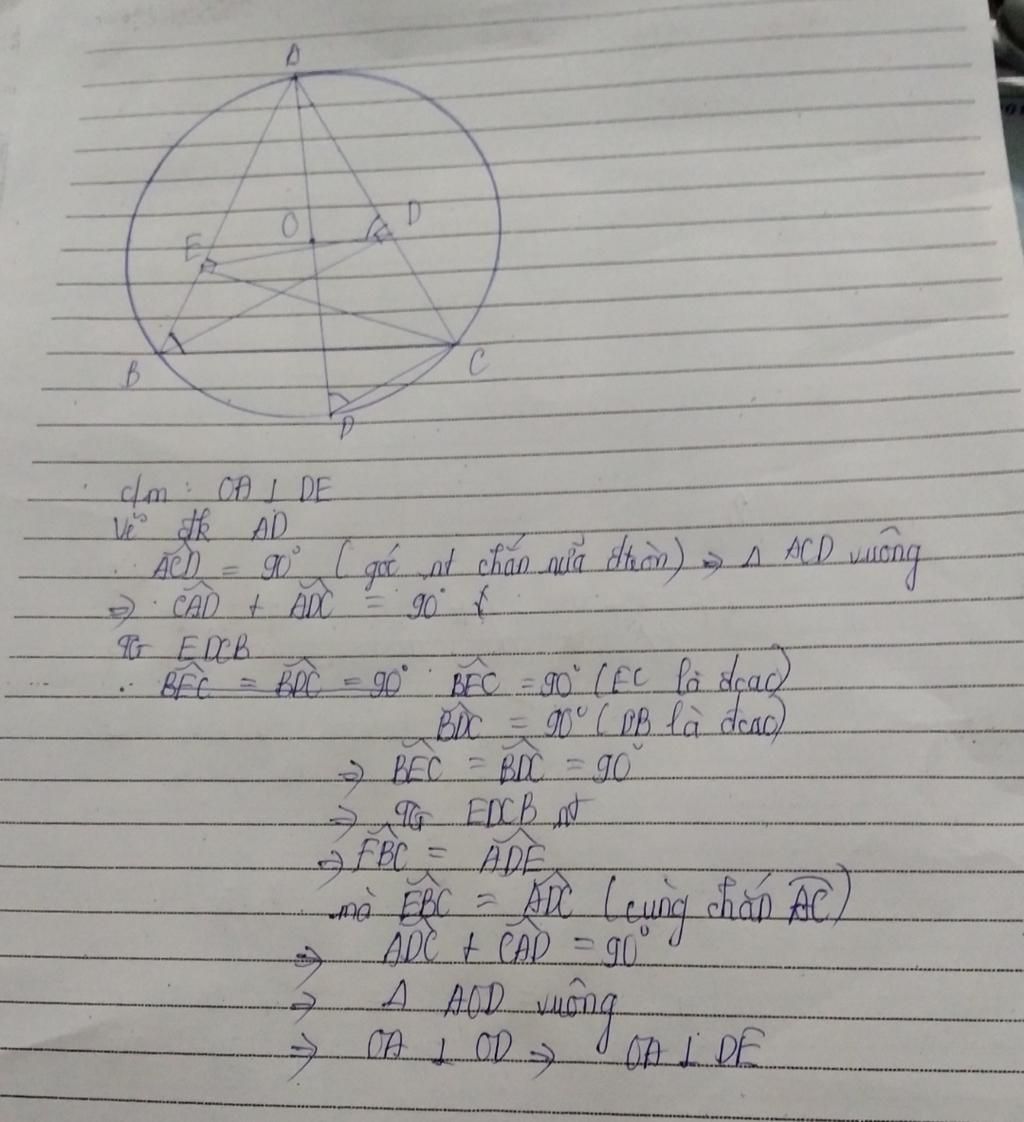 A
E
O
D
B
C
D
c/m : OA ⊥ DE
Vẽ đk AD
ACD = 90° ( góc nt chắn nửa đtròn) => Δ ACD vuông
=> CAD + ADC = 90°
tg EDCB
BEC = BDC = 90° BEC = 90° (EC là đcao)
BDC = 90° ( DB là đcao)
=> BEC = BDC = 90°
=> tg EDCB nt
=> EBC = ADE
mà EBC = ADC (cùng chắn AC)
=> ADC + CAD = 90°
=> Δ AOD vuông
=> OA ⊥ OD => OA ⊥ DE